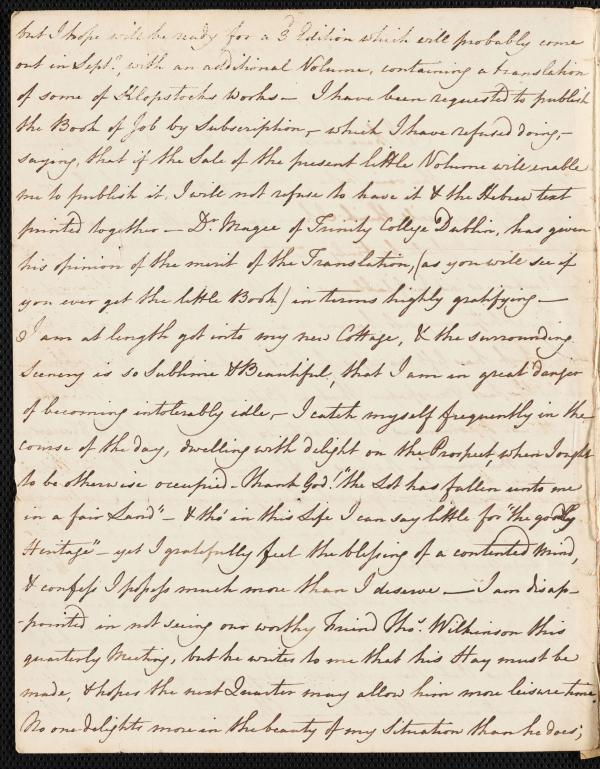 but I hope will be ready for a 3d Edition which will probably come
out in Septr. with an additional Volume, containing a translation
of some of Klopstocks works — I have been requested to publish
the Book of Job by Subscription, — which I have refused doing, —
saying, that if the Sale of the present little Volume will enable
me to publish it, I will not refuse to have it & the Hebrew text
printed together — Dr. Magee of Trinity College Dublin, has given
his opinion of the merit of the Translation, (as you will see if
you ever get the little Book) in terms highly gratifying —
I am at length got into my new Cottage, & the surrounding
Scenery is so Sublime & Beautiful, that I am in great danger
of becoming intolerably idle, — I catch myself frequently in the
course of the day, dwelling with delight on the Prospect, when I ought
to be otherwise occupied — Thank God! "the Lot has fallen unto me
in a fair Land" — & tho' in this Life I can say little for "the goodly
Heritage" — yet I gratefully feel the blessing of a contented mind,
& confess I possess much more than I deserve — I am disap-
-pointed in not seeing our worthy Friend Thos. Wilkinson this
quarterly Meeting, but he writes to me that his Hay must be
made, & hopes the next Quarter may allow him more leisure time.
No one delights more in the beauty of my Situation than he does;